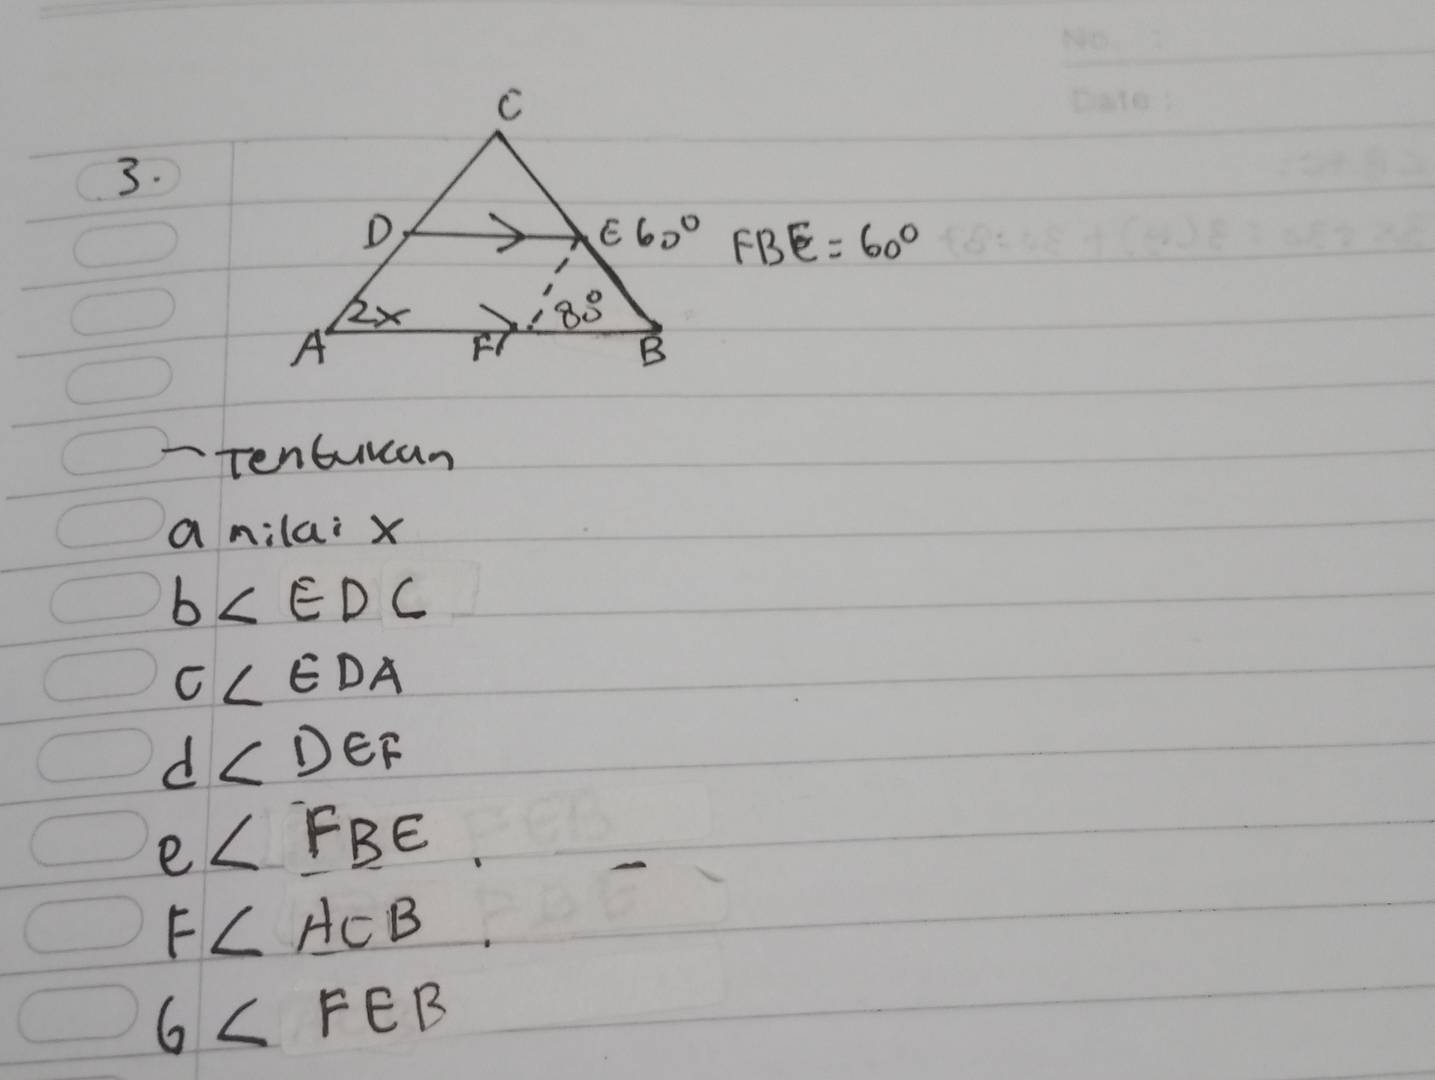 No :
Date :
3.
C
D E 60° FBE = 60°
2x 80°
A F B
- Tentukan
a nilai x
b < EDC
c < EDA
d < DEF
e < FBE .
F < ACB .
G < FEB